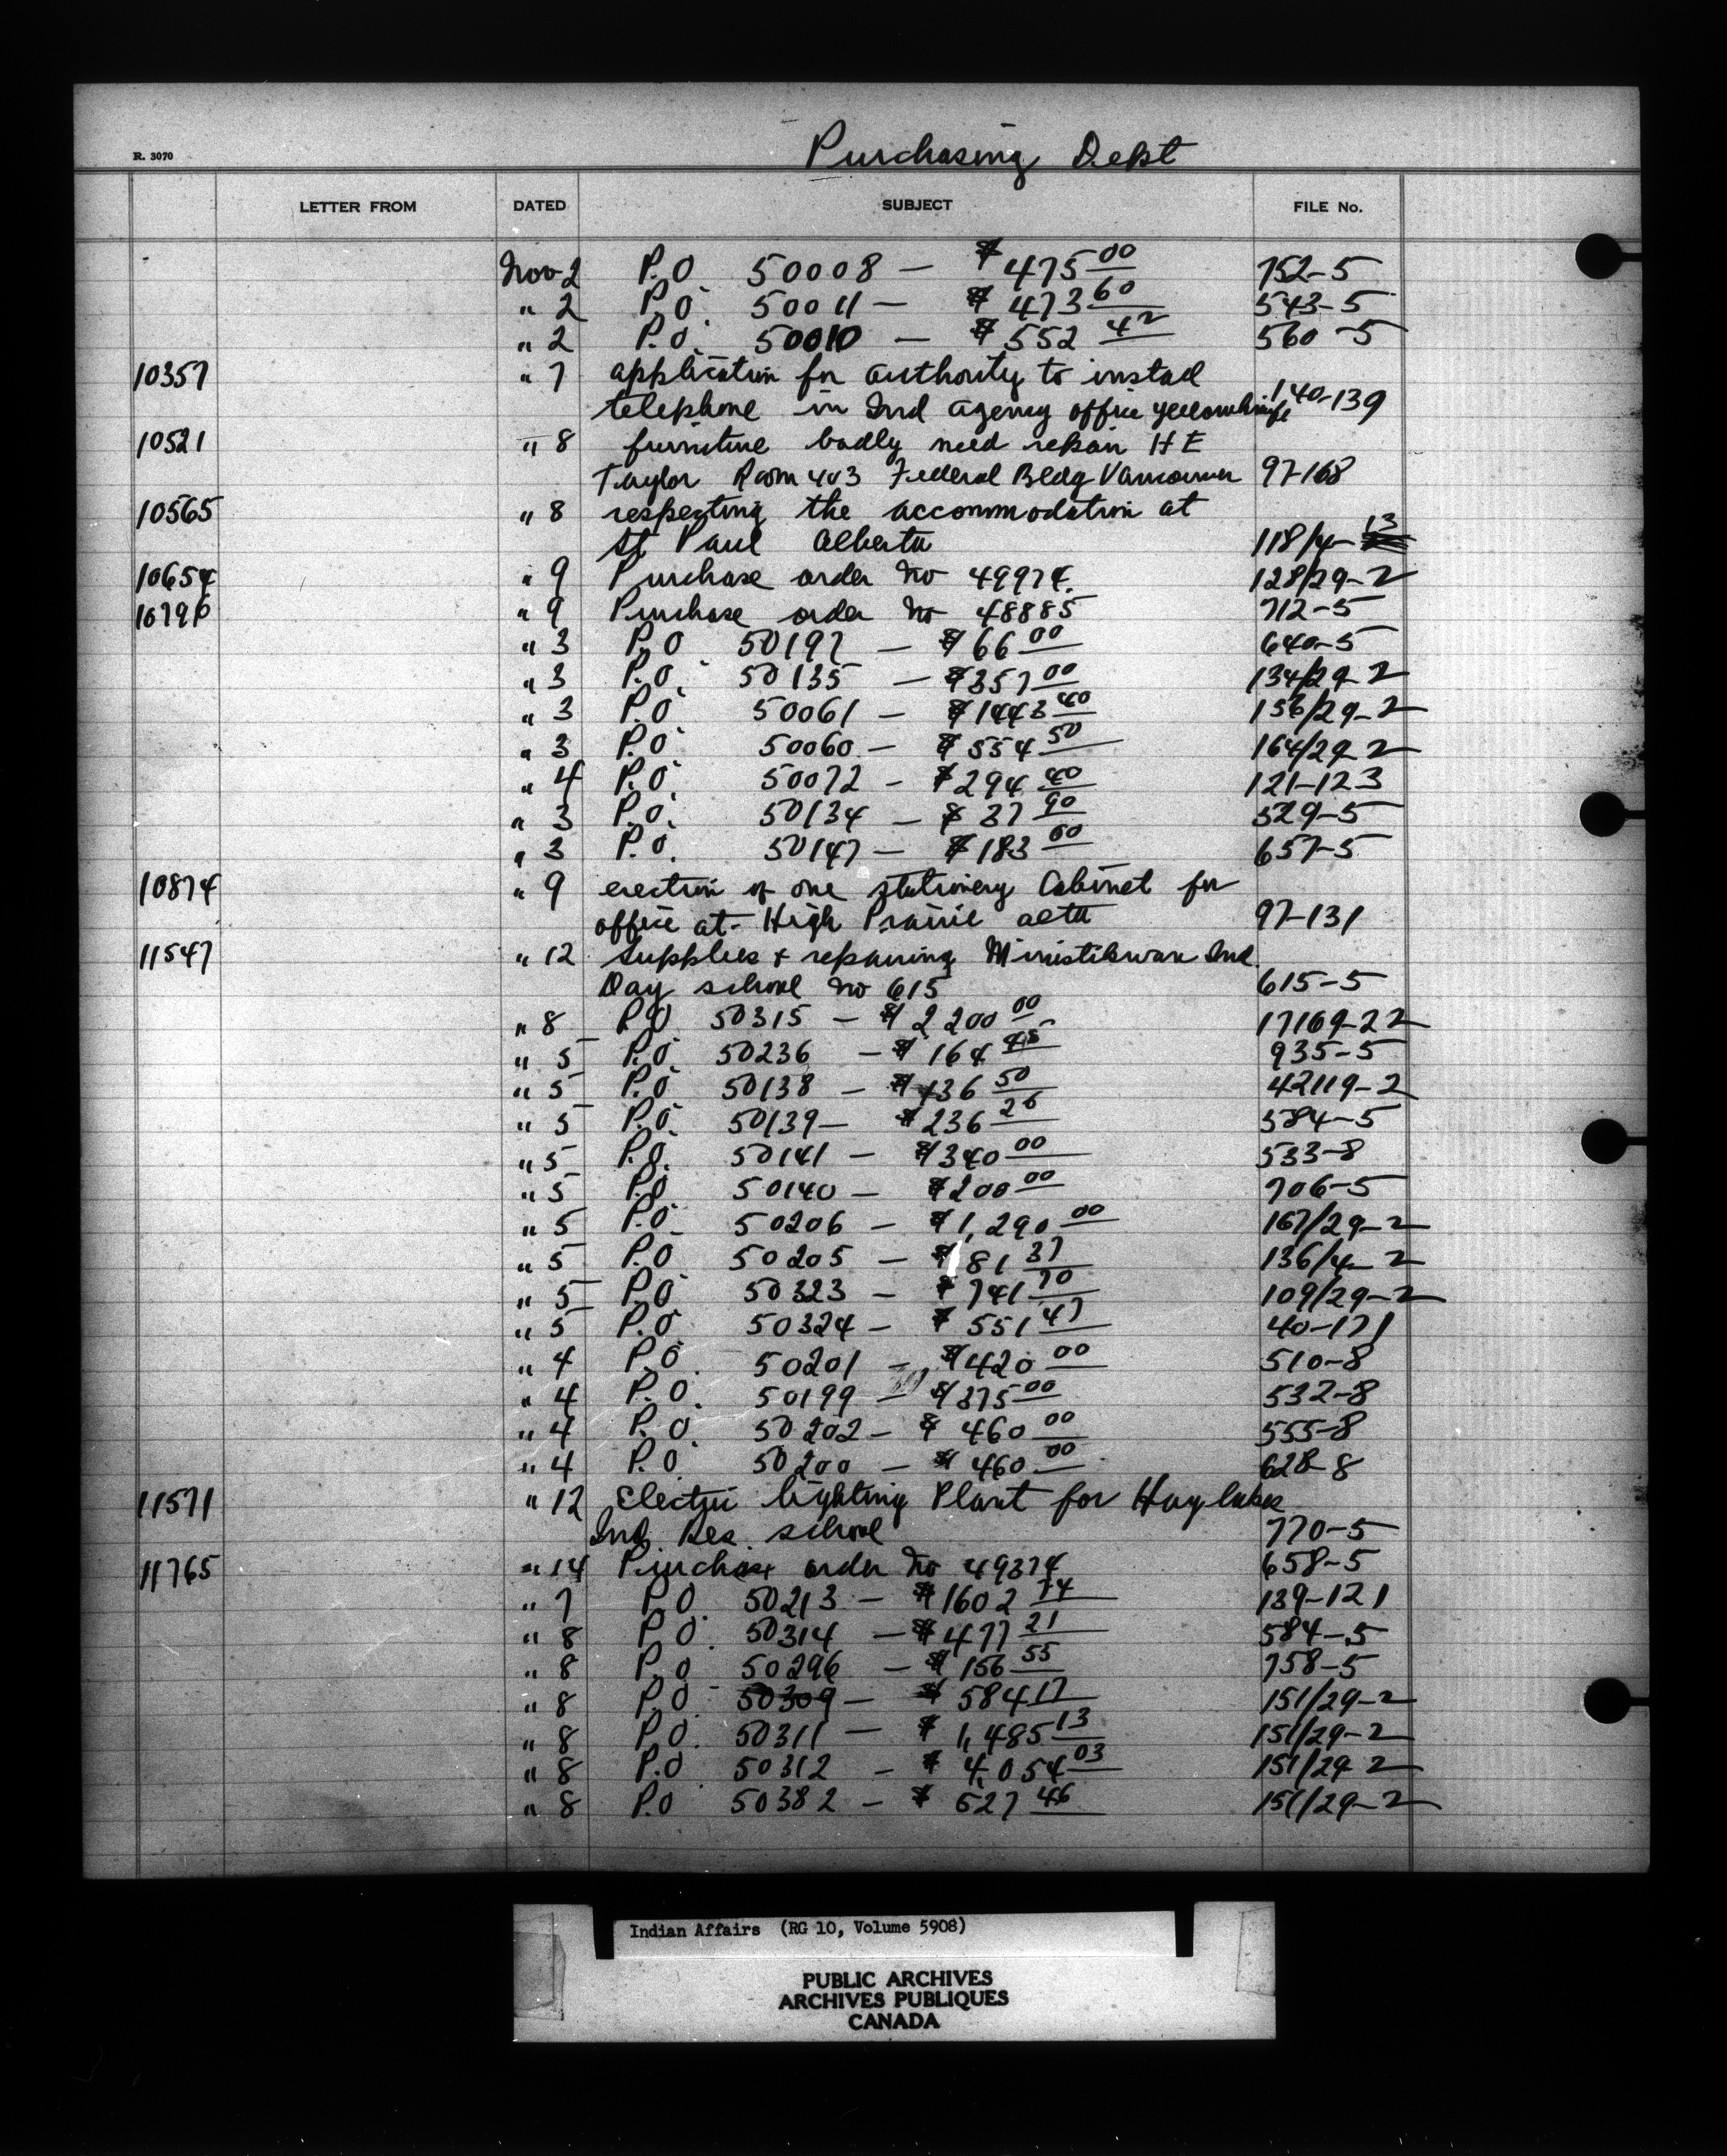 R. 3070
Purchasing Dept
LETTER FROM DATED SUBJECT FILE No.
Nov 2 P.O 50008 — $475 00 752-5
" 2 P.O. 50011 — $473 60 543-5
" 2 P.O. 50010 — $552 42 560-5
10357 " 7 application for authority to install
telephone in Ind Agency office Yellowknife 140-139
10521 " 8 furniture badly need repair H E
Taylor Room 403 Federal Bldg Vancouver 97-168
10565 " 8 respecting the accommodation at
St Paul Alberta 118/4-13
10654 " 9 Purchase order No 49974. 128/29-2
" 9 Purchase order No 48885 712-5
" 3 P.O. 50197 — $66 00 640-5
" 3 P.O. 50135 — $357 00 134/29-2
" 3 P.O. 50061 — $1443 40 156/29-2
" 3 P.O. 50060 — $554 50 164/29-2
" 4 P.O. 50072 — $294 40 121-123
" 3 P.O. 50134 — $37 90 529-5
" 3 P.O. 50147 — $183 00 657-5
10874 " 9 erection of one stationery Cabinet for
office at High Prairie Alta 97-131
11547 " 12 Supplies & repairing Ministikwan Ind.
Day school No 615 615-5
" 8 P.O 50315 — $2200 00 17169-22
" 5 P.O. 50236 — $164 45 935-5
" 5 P.O. 50138 — $136 50 42119-2
" 5 P.O. 50139 — $236 26 584-5
" 5 P.O. 50141 — $340 00 533-8
" 5 P.O. 50140 — $200 00 706-5
" 5 P.O. 50206 — $1,290 00 167/29-2
" 5 P.O 50205 — $ 81 37 136/4-2
" 5 P.O. 50323 — $741 70 109/29-2
" 5 P.O. 50324 — $551 47 40-171
" 4 P.O. 50201 — $420 00 510-8
" 4 P.O. 50199 — $375 00 532-8
" 4 P.O. 50202 — $460 00 555-8
" 4 P.O. 50200 — $460 00 628-8
11571 " 12 Electric lighting Plant for Hay Lakes
Ind. Res. school 770-5
11765 " 14 Purchase order No 49374 658-5
" 7 P.O. 50213 — $1602 74 139-121
" 8 P.O. 50314 — $477 21 584-5
" 8 P.O 50296 — $156 55 758-5
" 8 P.O. 50309 — $584 17 151/29-2
" 8 P.O. 50311 — $1,485 13 151/29-2
" 8 P.O 50312 — $4,054 03 151/29-2
" 8 P.O 50382 — $527 46 151/29-2
Indian Affairs (RG 10, Volume 5908)
PUBLIC ARCHIVES
ARCHIVES PUBLIQUES
CANADA